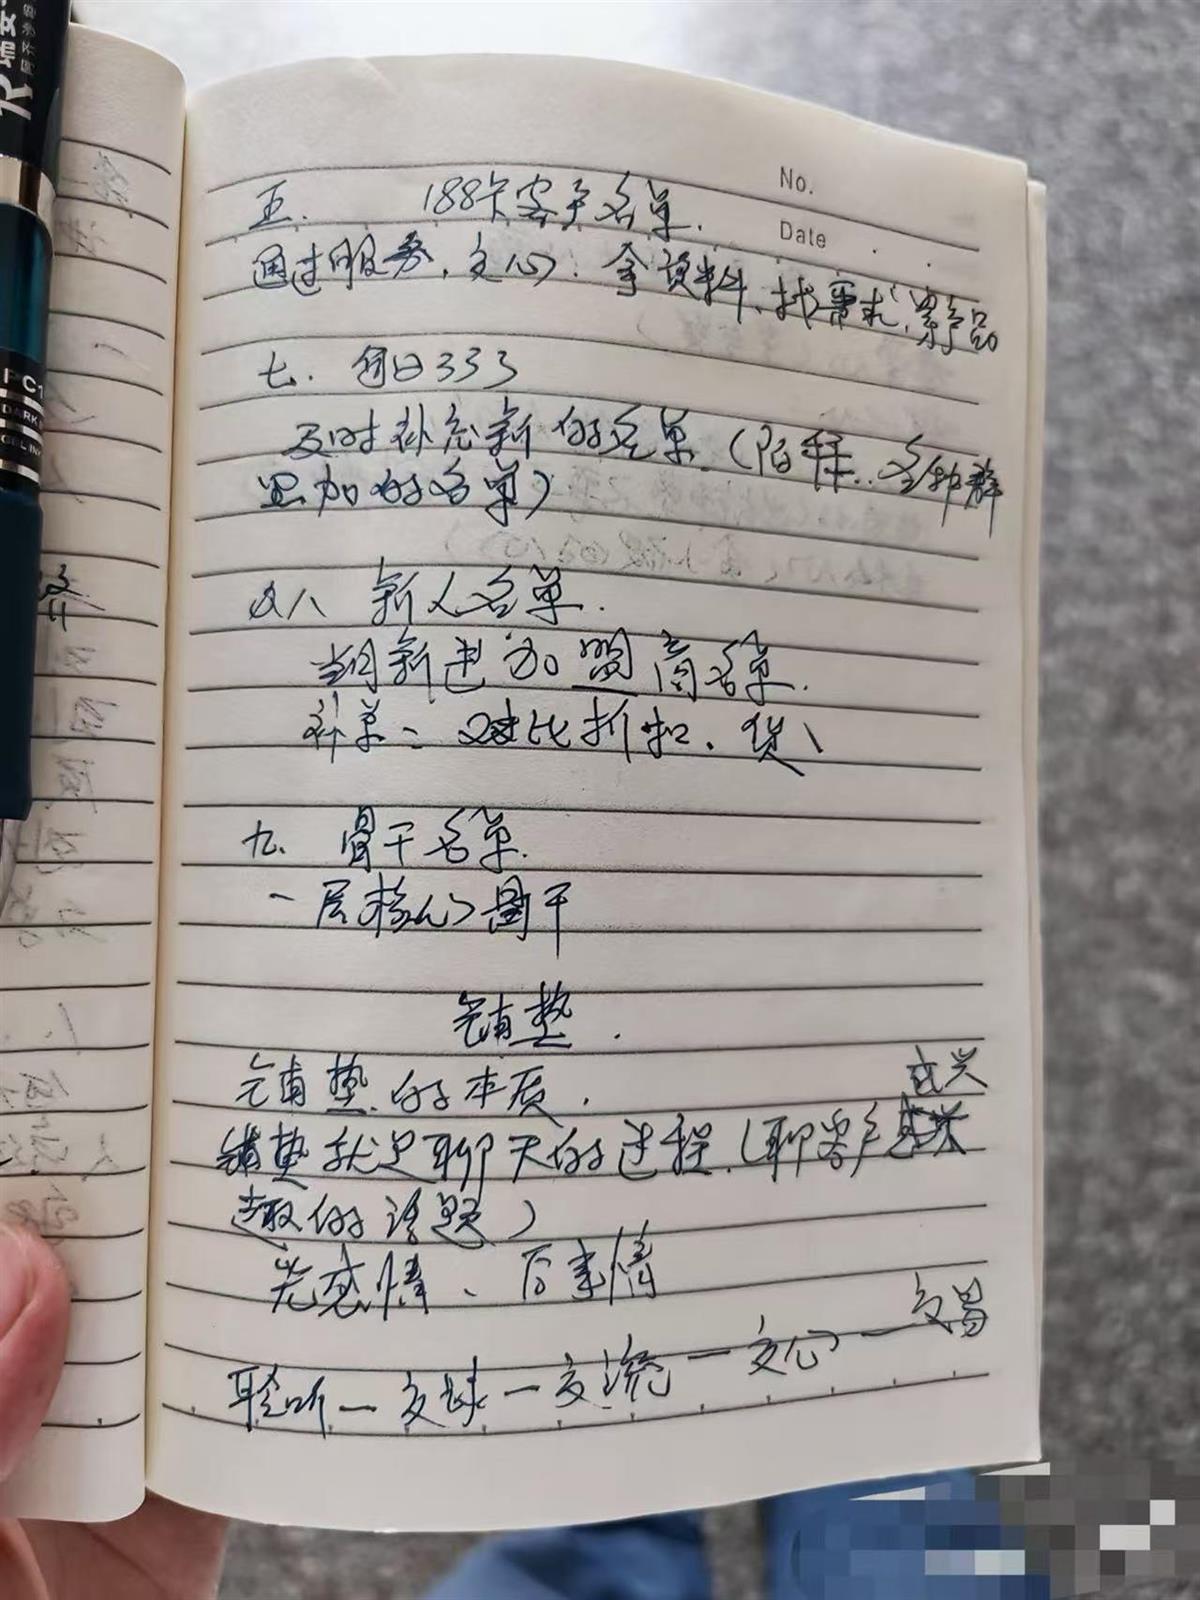 No.
Date
五. 188卡客户名单.
通过服务,交心.拿资料、找需求,寄产品
七. 每日333
及时补充新的名单(陌拜..各种群
里加的名单)
八 新人名单.
当月新进加盟商名单.
补单:对比折扣、货、
九. 骨干名单.
一层核心骨干
铺垫.
铺垫的本质.
感兴
铺垫就是聊天的过程.(聊客户
趣的话题)
先感情、后事情
聆听—交球—交流—交心—交易